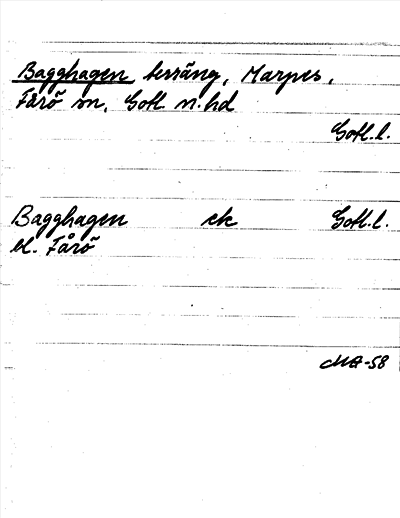 Bagghagen terräng, Marpes,
Fårö sn, Gotl n. hd
Gotl. l.
Bagghagen ek Gotl. l.
el. Fårö
MG-58